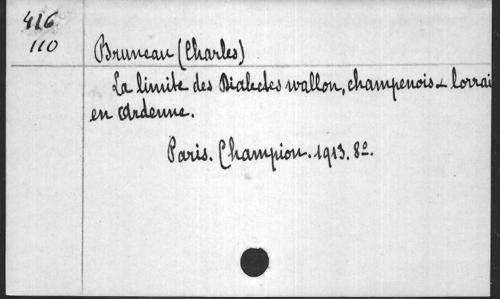 416
110
Bruneau (Charles)
La limite des Dialectes wallon, champenois & lorrai
en Ardenne.
Paris. Champion. 1913. 8º.